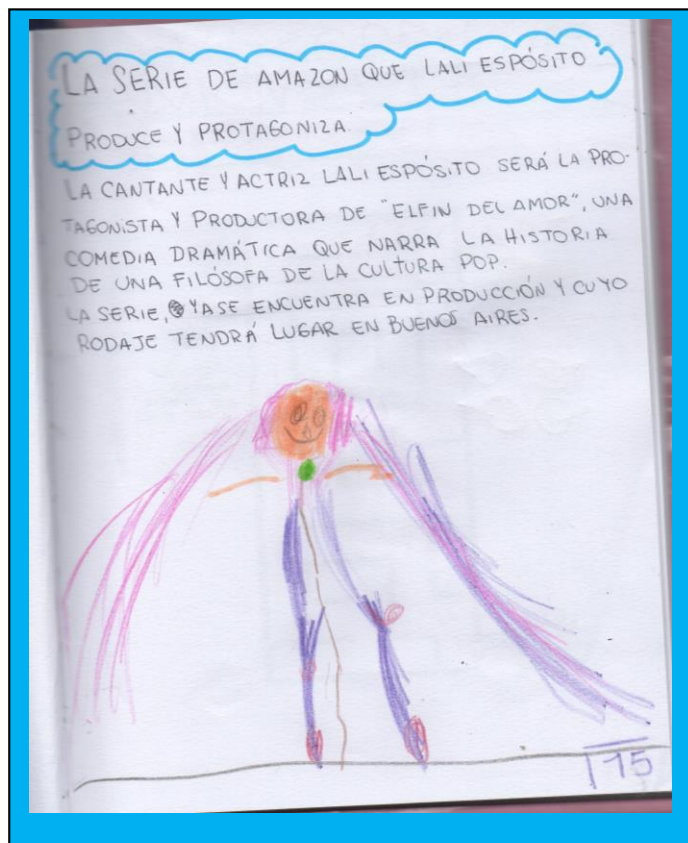 LA SERIE DE AMAZON QUE LALI ESPÓSITO
PRODUCE Y PROTAGONIZA.
LA CANTANTE Y ACTRIZ LALI ESPÓSITO SERÁ LA PRO-
TAGONISTA Y PRODUCTORA DE "ELFIN DEL AMOR", UNA
COMEDIA DRAMÁTICA QUE NARRA LA HISTORIA
DE UNA FILÓSOFA DE LA CULTURA POP.
LA SERIE, YA SE ENCUENTRA EN PRODUCCIÓN Y CUYO
RODAJE TENDRÁ LUGAR EN BUENOS AIRES.
15